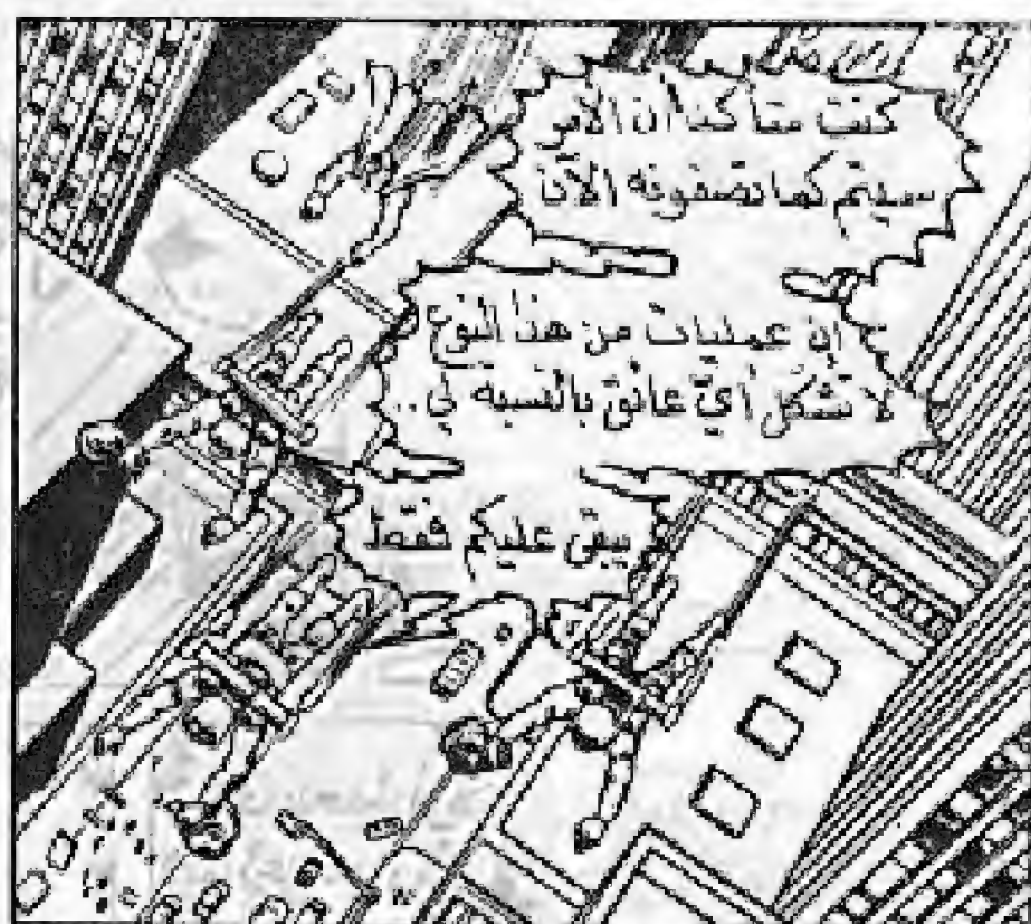 كنت متأكدا أن الأمر
سيتم كما تصفونه الآن
إن عمليات من هذا النوع
لا تشكل أي عائق بالنسبة لي..
يبقى عليكم فقط